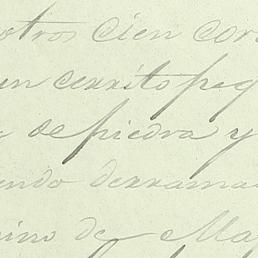 otros cien cor
un cerrito peq
de piedra y
endo derrama
mino de Ma